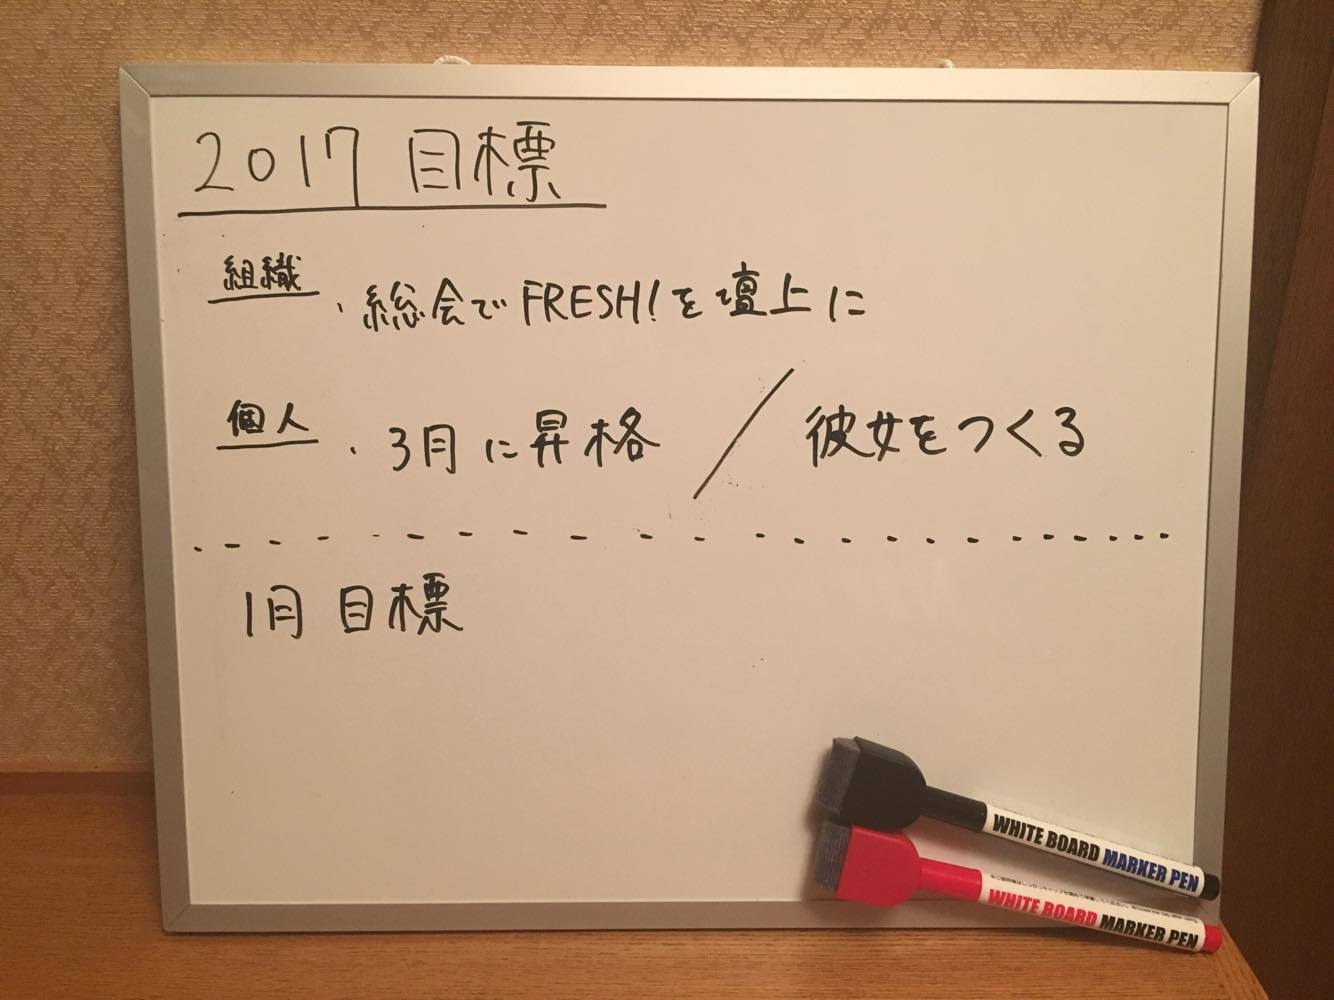 2017 目標
組織
・総会でFRESH!を壇上に
個人
・3月に昇格 / 彼女をつくる
1月 目標
WHITE BOARD MARKER PEN
WHITE BOARD MARKER PEN